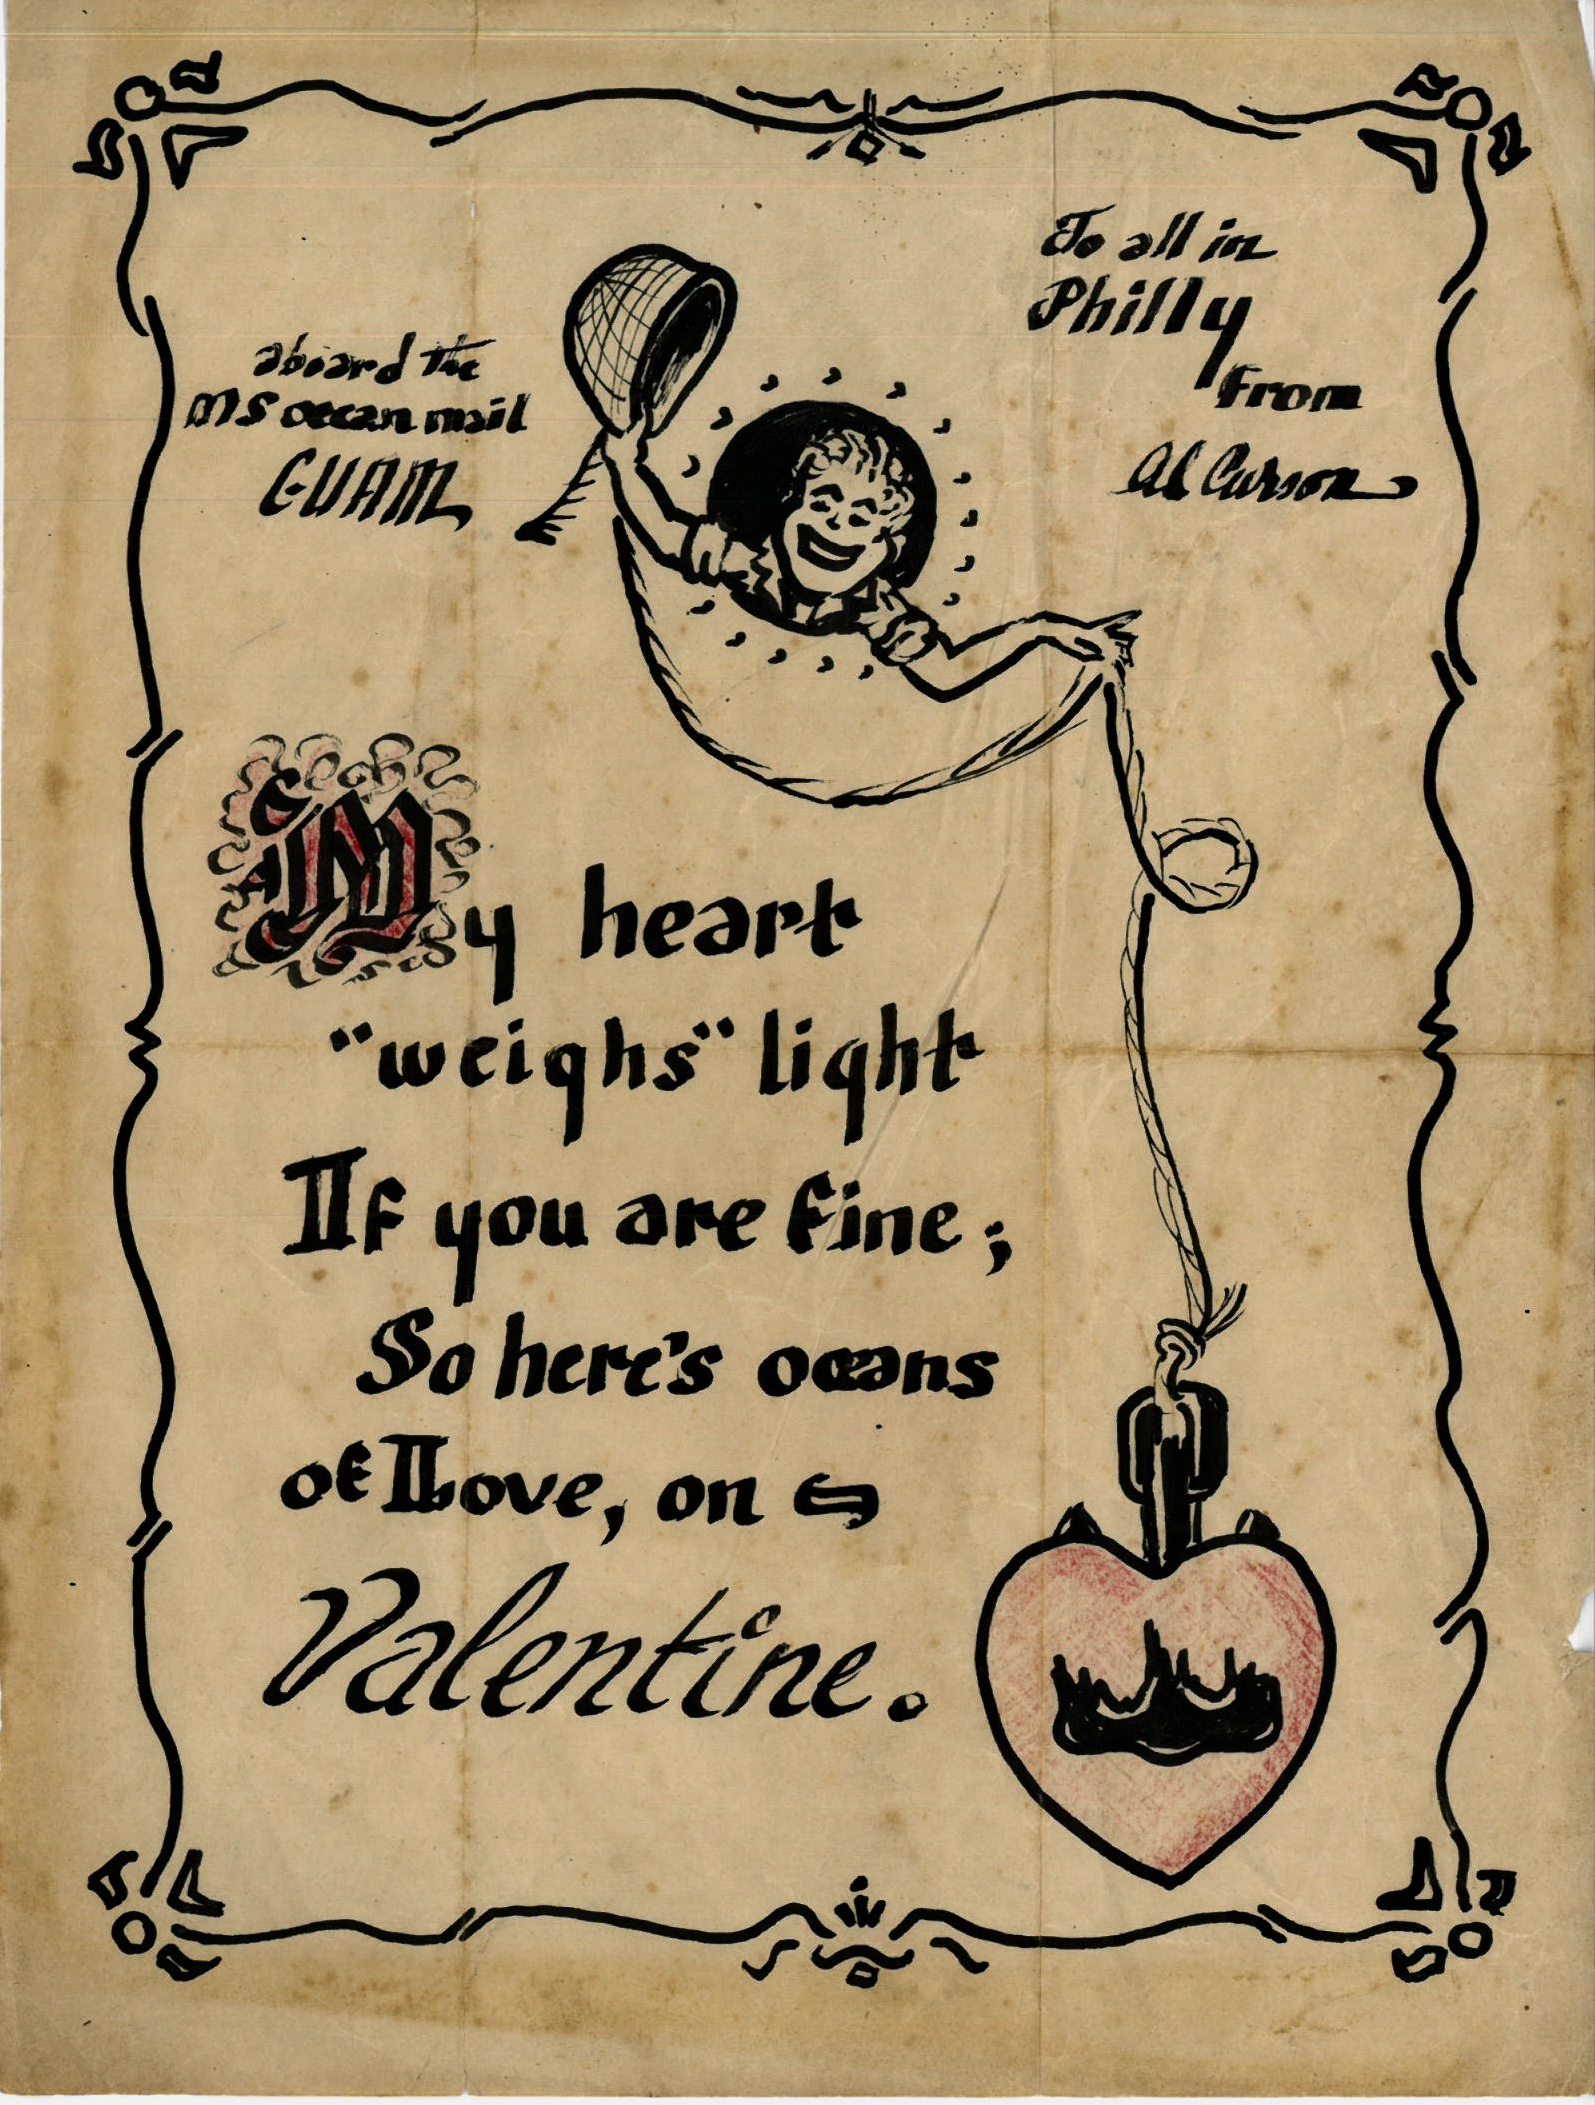 To all in
Philly
From
Al Curson
aboard the
MS ocean mail
GUAM
My heart
"weighs" light
If you are fine;
So here's oceans
of Love, on
Valentine.